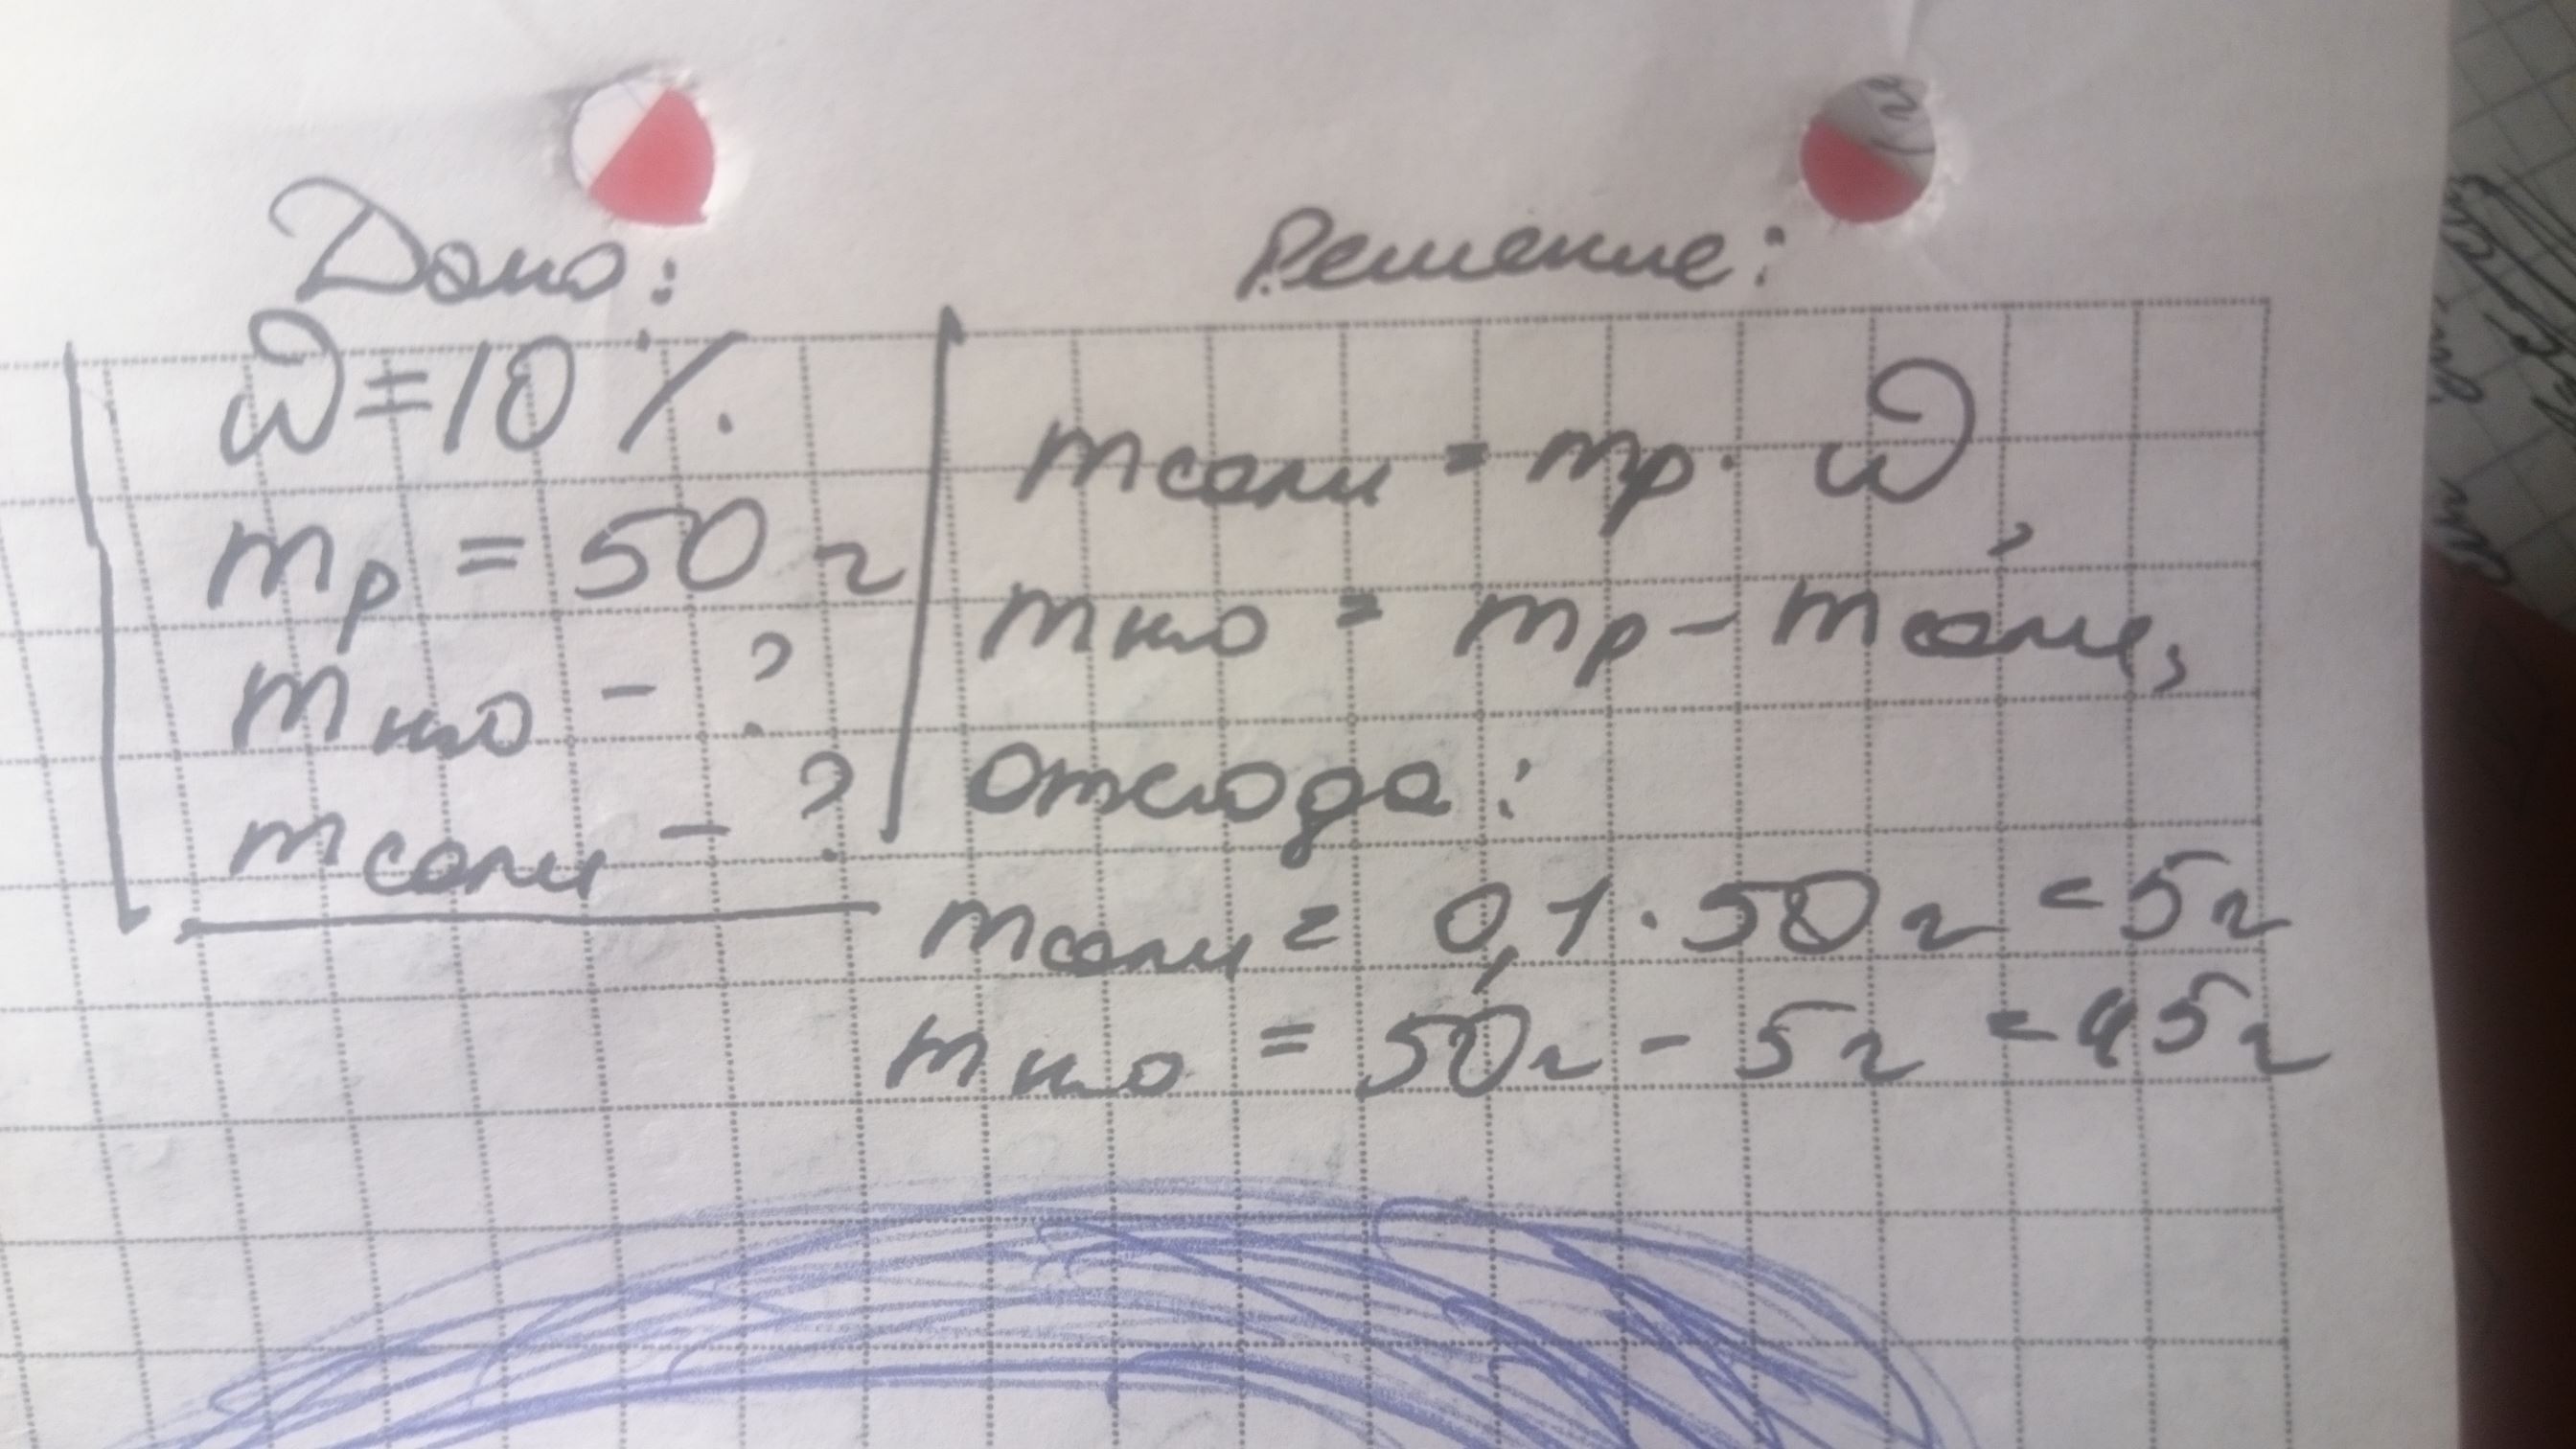 Дано:
ω = 10 %
mр = 50 г
mн₂о - ?
mсоли - ?
Решение:
mсоли = mр · ω,
mн₂о = mр - mсоли,
отсюда:
mсоли = 0,1 · 50 г = 5 г
mн₂о = 50 г - 5 г = 45 г